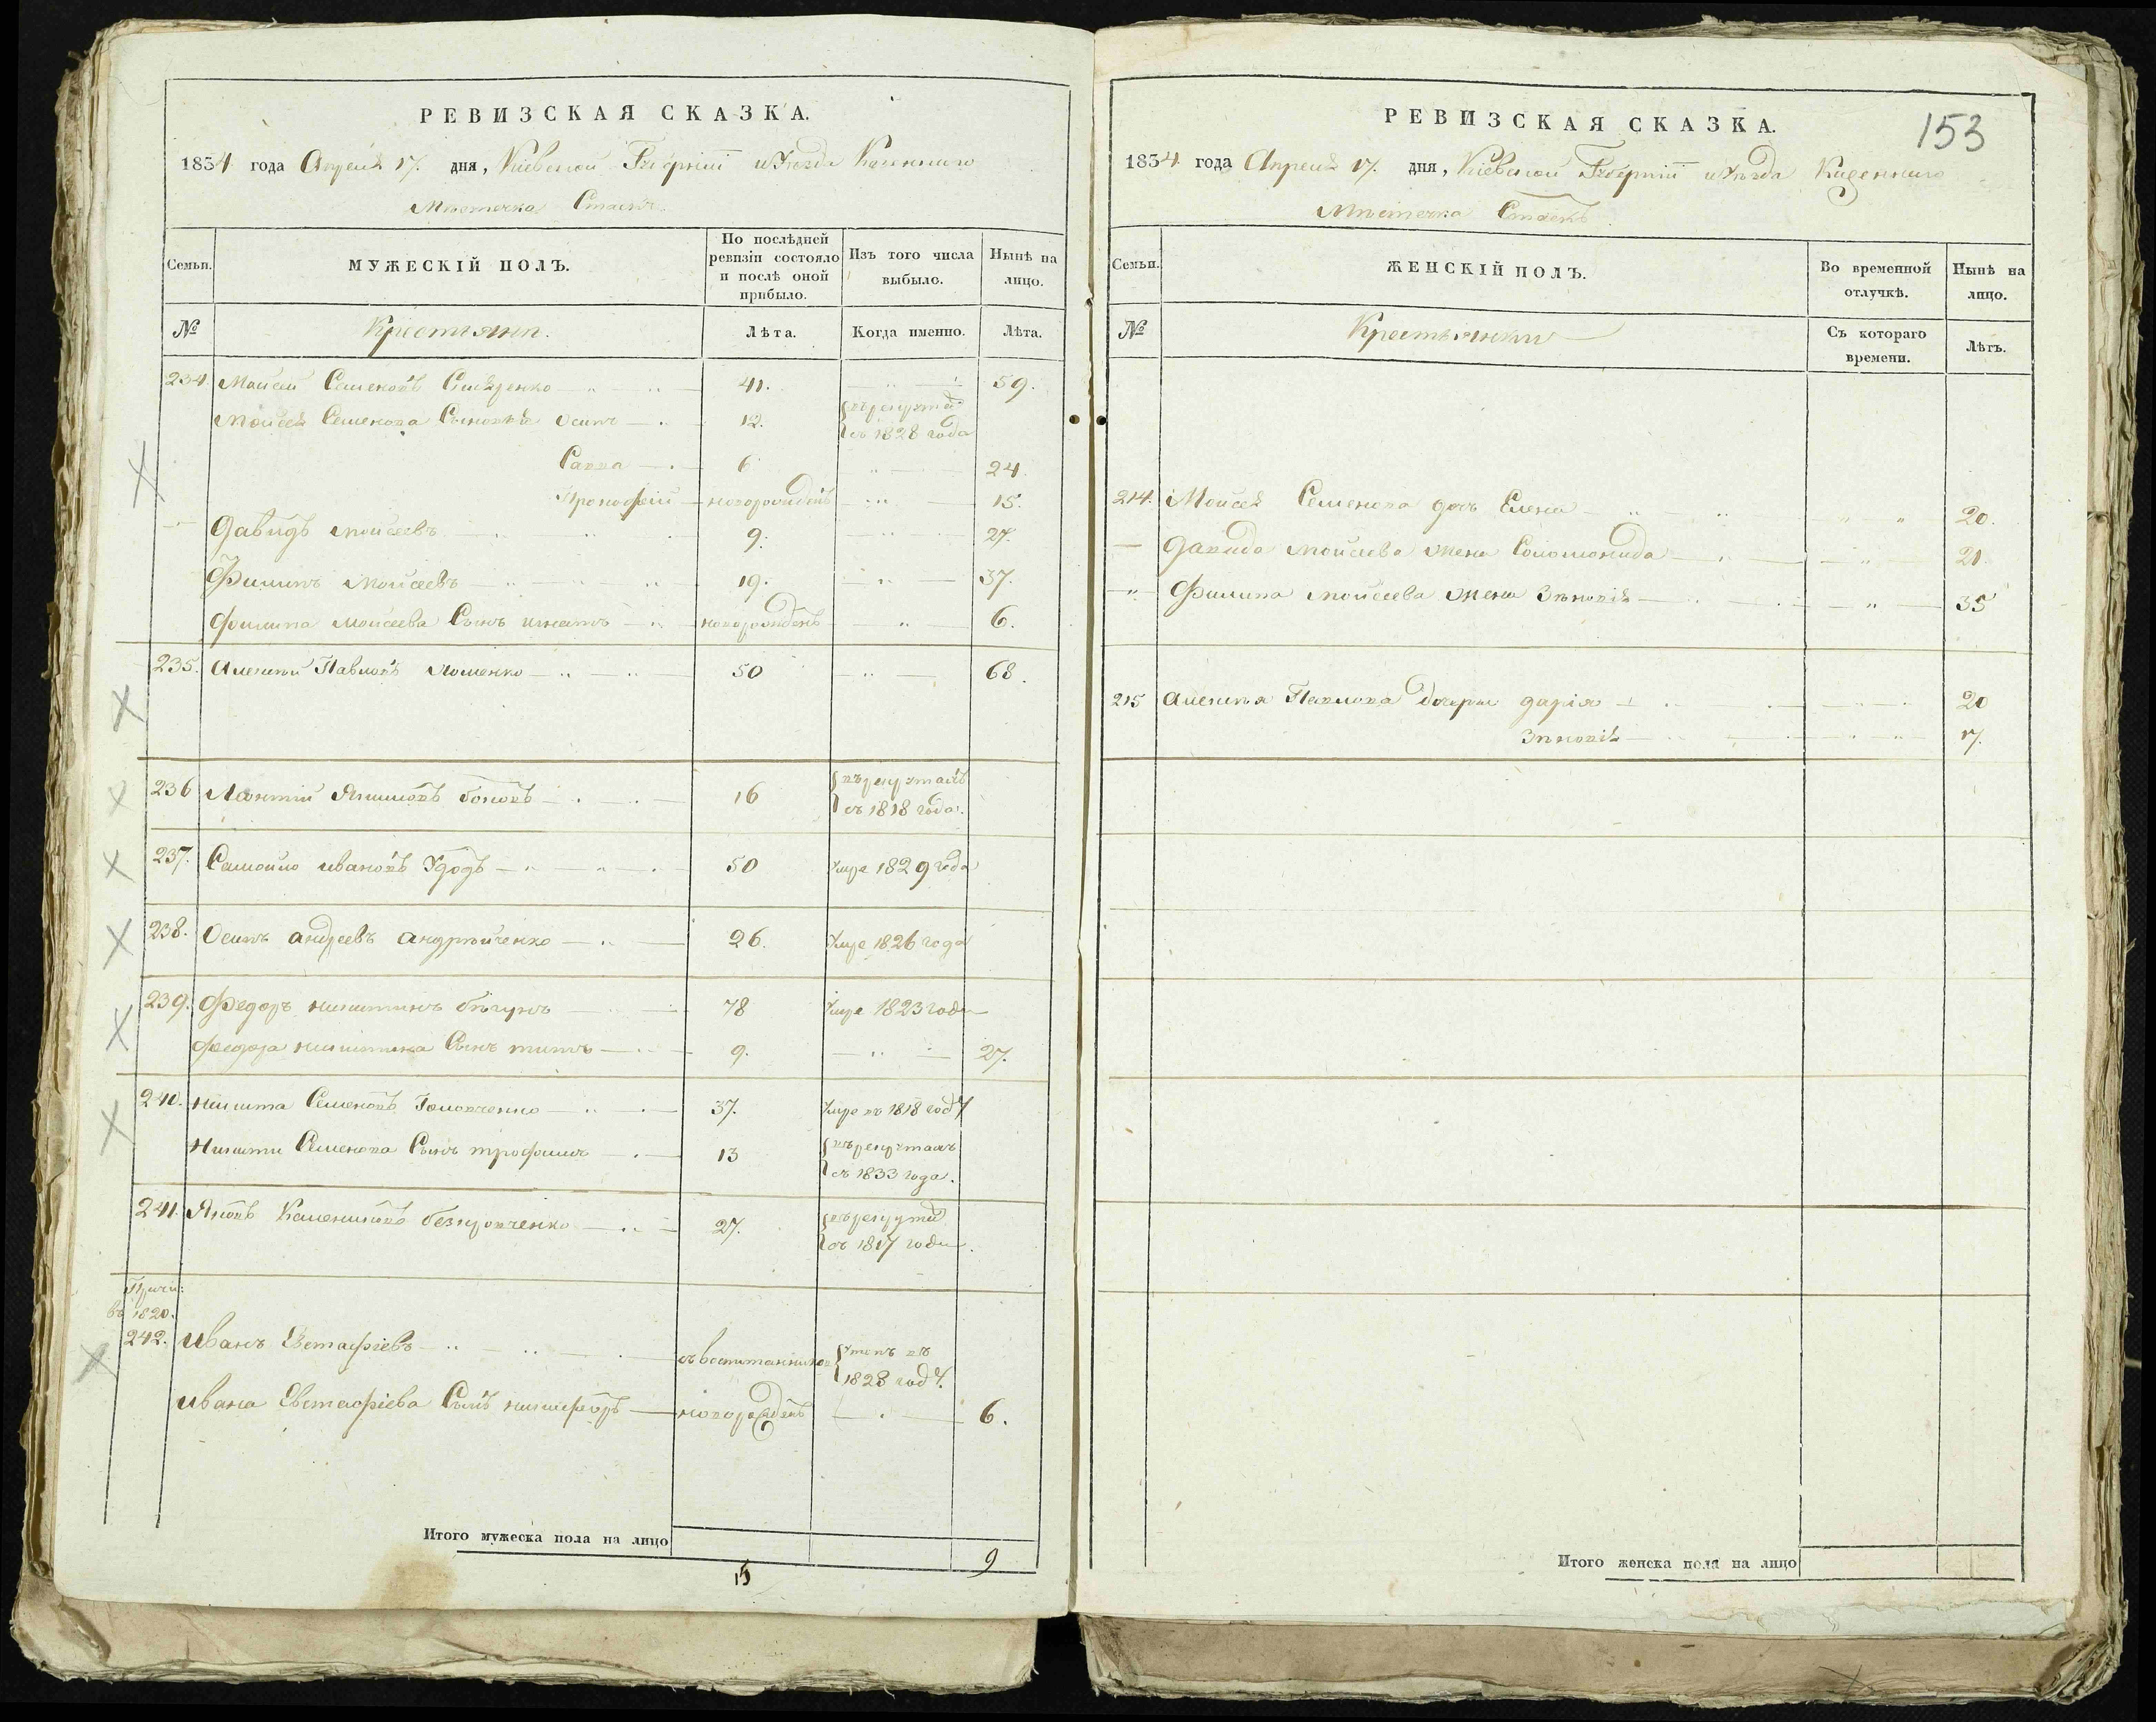 РЕВИЗСКАЯ СКАЗКА.
1834 года Апреля 17. дня, Кіевской Губерніи и Уезда Казеннаго
Местечка Стаекъ
Семьи. МУЖЕСКІЙ ПОЛЪ. По послѣдней ревизіи состояло и послѣ оной прибыло. Изъ того числа выбыло. Нынѣ на лицо.
№ Крестьяни. Лѣта. Когда именно. Лѣта.
234. Моисей Семеновъ 41. 59.
Моисея Семенова Сыновья Осипъ 12. въ рекрута съ 1828 года
Савва 6 24.
Прокофей новорожденъ 15.
Давидъ Моисеевъ 9. 27.
Филипъ Моисеевъ 19. 37.
Филипа Моисеева Сынъ Игнатъ новорожденъ 6.
235. Алексей Павловъ 50 68.
236 Леонтий Якимовъ 16 въ рекрутахъ съ 1818 года.
237. Самойло Ивановъ Удодъ 50 умре 1829 года
238. Осипъ Андреевъ Андрейченко 26. умре 1826 года
239. Федоръ Никитинъ Бѣгунъ 78 умре 1823 года
Федора Никитина Сынъ Титъ 9. 27.
240. Никита Семеновъ Головченко 37. умре въ 1818 году
Никити Семенова Сынъ Трофимъ 13 въ рекрутахъ съ 1833 года.
241. Яковъ 27. въ рекрута съ 1817 года.
Причи:
въ 1820.
242. Иванъ Евстафіевъ съ воспитанниковъ 1828 году.
Ивана Евстафіева Сынъ Никифоръ новорожденъ 6.
Итого мужеска пола на лицо 9
15
153
РЕВИЗСКАЯ СКАЗКА.
1834. года Апреля 17. дня, Кіевской Губерніи и Уѣзда Казеннаго
Мѣстечка Стаекъ
Семьи. ЖЕНСКІЙ ПОЛЪ. Во временной отлучкѣ. Нынѣ на лицо.
№ Крестьянки Съ котораго времени. Лѣтъ.
214. Моисея Семенова дочь Елена 20.
Давида Моисеева жена Соломонида 21.
Филипа Моисеева жена Зѣновія 35
215 Алексея Павлова дочери Дарія 20
Зѣновія 17.
Итого женска пола на лицо